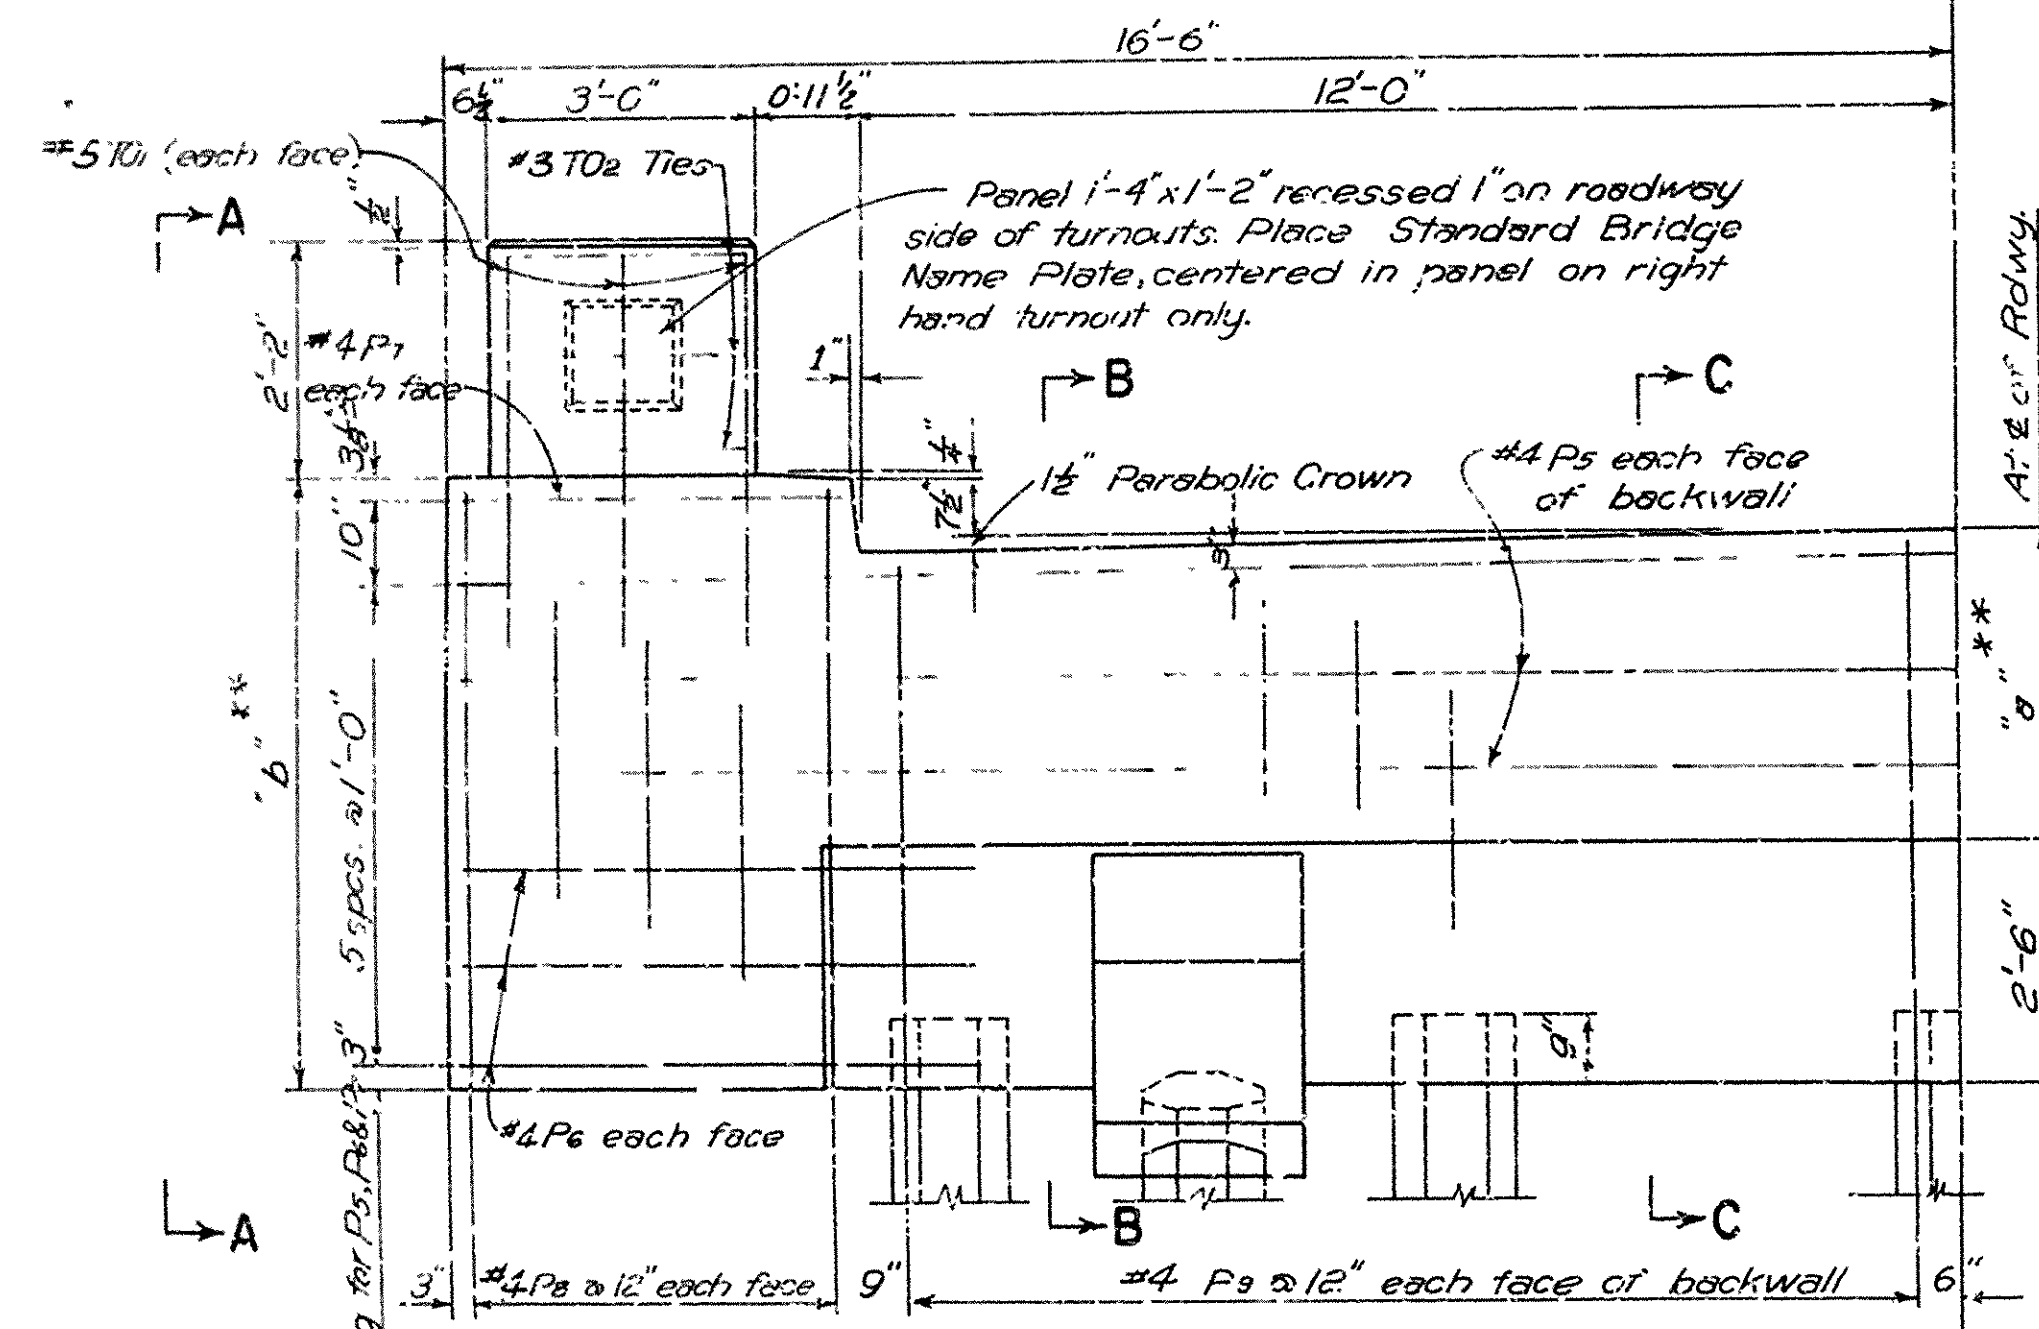 16'-6"
6½" 3'-0" 0'-11½" 12'-0"
#5 TO1 (each face)
#3 TO2 Ties
½"
A
Panel 1'-4" x 1'-2" recessed 1" on roadway
side of turnouts. Place Standard Bridge
Name Plate, centered in panel on right
hand turnout only.
At ℄ of Rdwy.
2'-2"
#4 P7
each face
1"
B
C
3½"
¼"
7½"
1½" Parabolic Crown
#4 P5 each face
of backwall
10"
3"
"b" **
5 spcs. @ 1'-0"
"a" **
2'-6"
3"
9"
#4 P6 each face
for P5, P6 & P7
A
B
C
3" #4 P8 @ 12" each face 9" #4 P9 @ 12" each face of backwall 6"